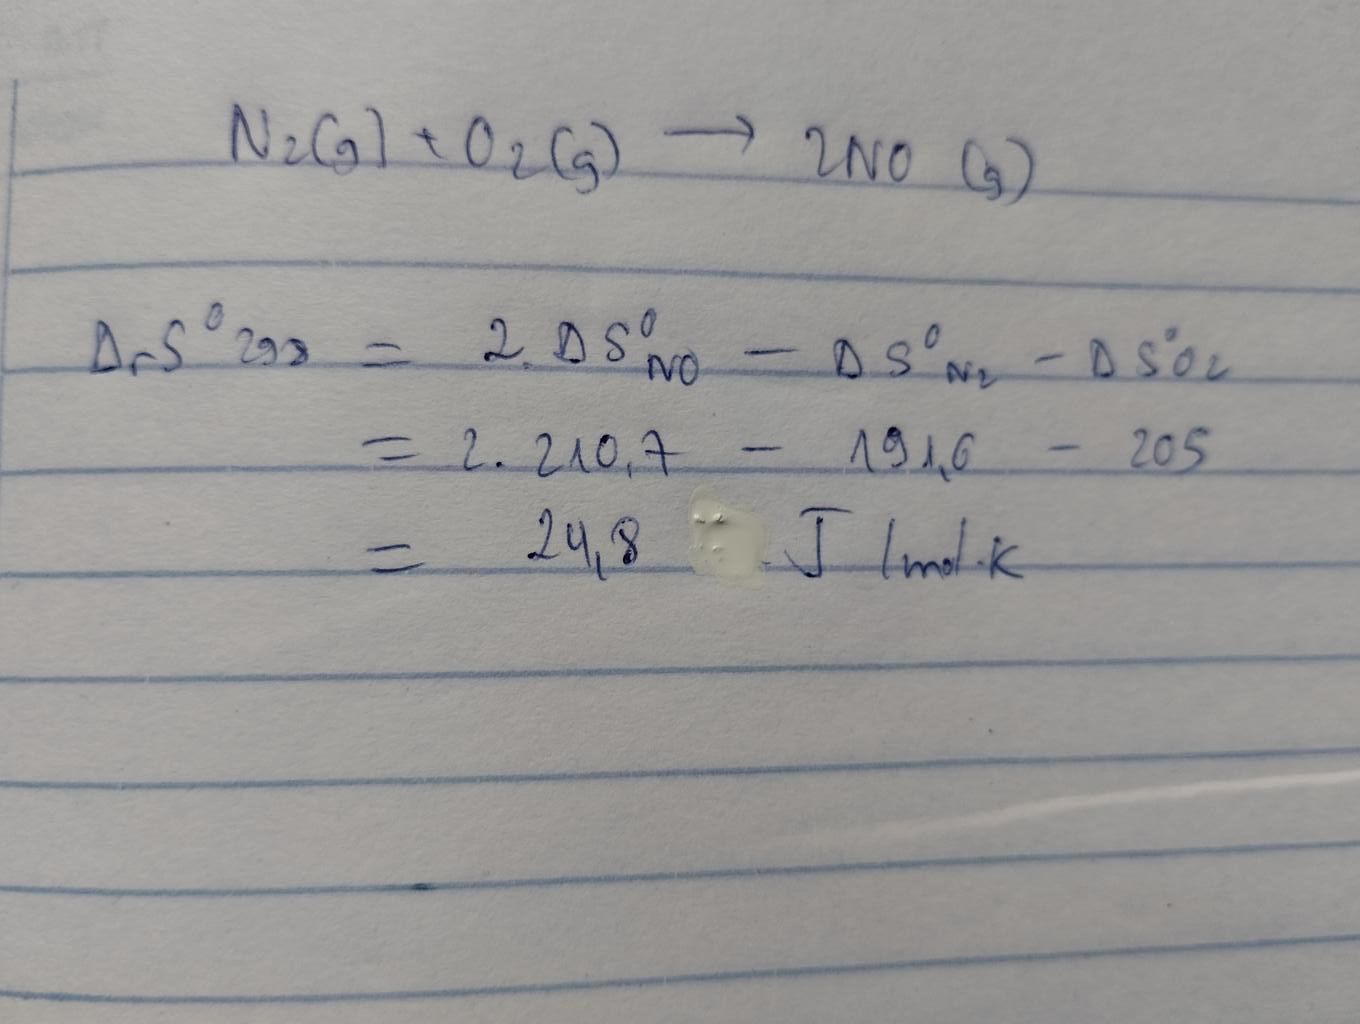 N2(g) + O2(g) → 2NO (g)
ΔrS⁰298 = 2. ΔS⁰NO − ΔS⁰N2 − ΔS⁰O2
= 2. 210,7 − 191,6 − 205
= 24,8 J /mol.K